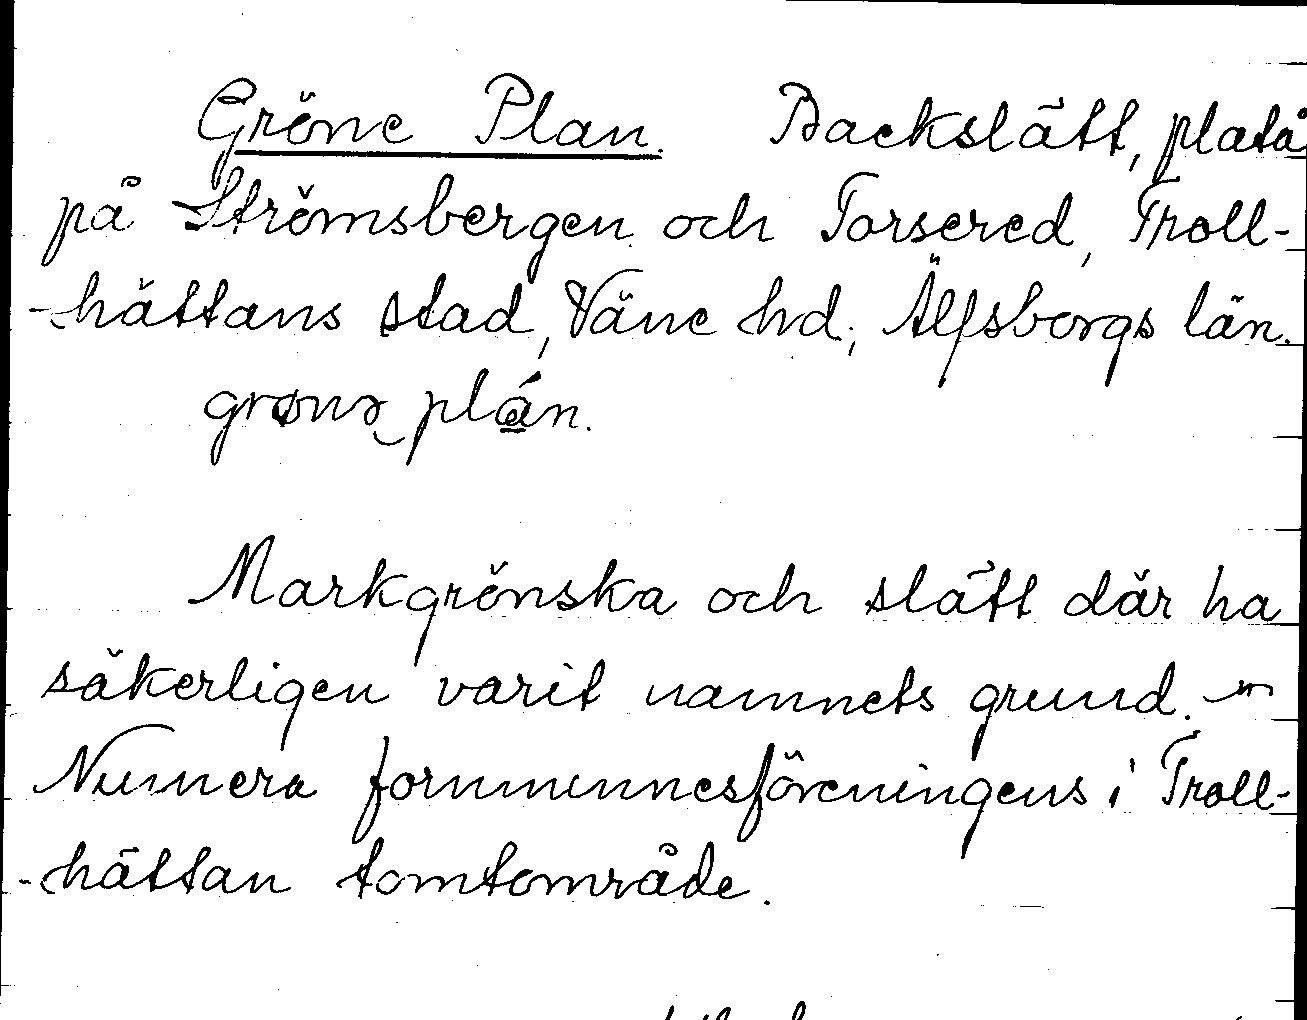 Gröne Plan. Backslätt, platå
på Strömsbergen och Torsered, Troll-
-hättans stad, Väne hd, Älfsborgs län.
grønə plán.
Markgrönska och slätt där ha
säkerligen varit namnets grund. –
Numera fornminnesföreningens i Troll-
-hättan tomtområde.